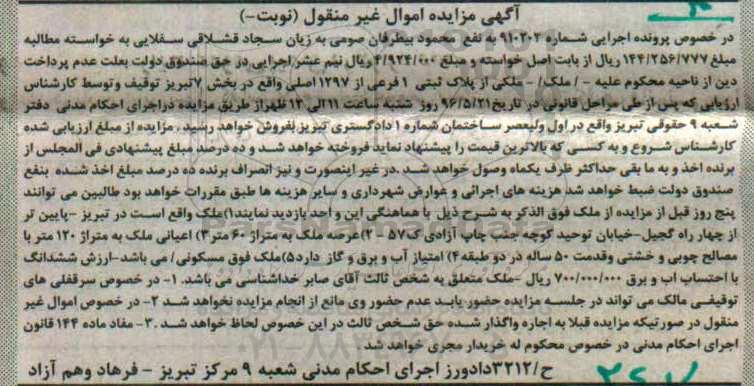 آگهی مزایده اموال غیر منقول (نوبت-)
در خصوص پرونده اجرایی شماره ۹۱۰۲۰۴ به نفع محمود بیطرفان صومی به زیان سجاد قشلاقی سفلایی به خواسته مطالبه
مبلغ ۱۴۴/۲۵۶/۷۷۷ ریال از بابت اصل خواسته و مبلغ ۴/۹۲۴/۰۰۰ ریال نیم عشر اجرایی در حق صندوق دولت بعلت عدم پرداخت
دین از ناحیه محکوم علیه - / ملک/ - ملکی از پلاک ثبتی ۱ فرعی از ۱۲۹۷ اصلی واقع در بخش ۷ تبریز توقیف و توسط کارشناس
ارزیابی که پس از طی مراحل قانونی در تاریخ ۹۶/۵/۲۱ روز شنبه ساعت ۱۱ الی ۱۲ ظهر از طریق مزایده در اجرای احکام مدنی دفتر
شعبه ۹ حقوقی تبریز واقع در اول ولیعصر ساختمان شماره ۱ دادگستری تبریز بفروش خواهد رسید. مزایده از مبلغ ارزیابی شده
کارشناس شروع و به کسی که بالاترین قیمت را پیشنهاد نماید فروخته خواهد شد و ده درصد مبلغ پیشنهادی فی المجلس از
برنده اخذ و به ما بقی حداکثر ظرف یکماه وصول خواهد شد. در غیر اینصورت و نیز انصراف برنده ده درصد مبلغ اخذ شده بنفع
صندوق دولت ضبط خواهد شد هزینه های اجرائی و عوارض شهرداری و سایر هزینه ها طبق مقررات خواهد بود طالبین می توانند
پنج روز قبل از مزایده از ملک فوق الذکر به شرح ذیل با هماهنگی این واحد بازدید نمایند ۱)ملک واقع است در تبریز - پایین تر
از چهار راه گجیل-خیابان توحید کوچه جنب چاپ آزادی ک۵۷ ۲)عرصه ملک به متراژ ۶۰ متر ۳) اعیانی ملک به متراژ ۱۲۰ متر با
مصالح چوبی و خشتی و قدمت ۵۰ ساله در دو طبقه ۴) امتیاز آب و برق و گاز دارد ۵)ملک فوق مسکونی/ می باشد-ارزش ششدانگ
با احتساب اب و برق ۷۰۰/۰۰۰/۰۰۰ ریال -ملک متعلق به شخص ثالث آقای صابر خداشناسی می باشد. ۱- در خصوص سرقفلی های
توقیفی مالک می تواند در جلسه مزایده حضور یابد عدم حضور وی مانع از انجام مزایده نخواهد شد ۲- در خصوص اموال غیر
منقول در صورتیکه مزایده قبلا به اجاره واگذار شده حق شخص ثالث در این خصوص لحاظ خواهد شد .۳- مفاد ماده ۱۴۴ قانون
اجرای احکام مدنی در خصوص محکوم له خریدار مجری خواهد شد
ح/۳۲۱۲ دادورز اجرای احکام مدنی شعبه ۹ مرکز تبریز - فرهاد وهم آزاد